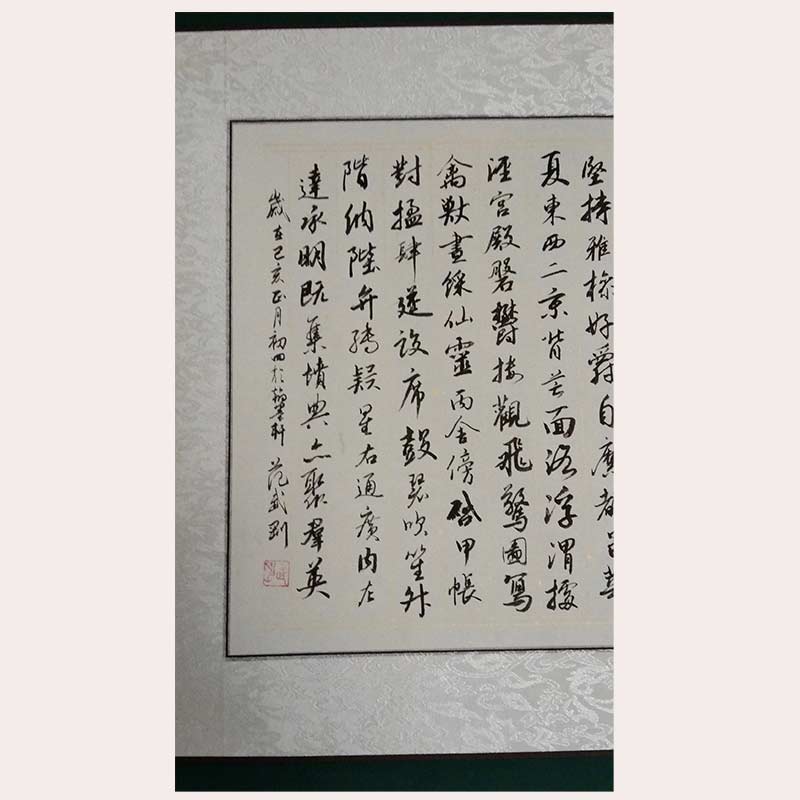 堅持雅操好爵自縻都邑華
夏東西二京背芒面洛浮渭據
涇宮殿磐欝樓觀飛驚圖寫
禽獸畫綵仙靈丙舍傍啓甲帳
對楹肆筵設席鼓瑟吹笙升
階納陛弁轉疑星右通廣內左
達承明既集墳典亦聚羣英
歲在己亥正月初四於翰墨軒 范武剛